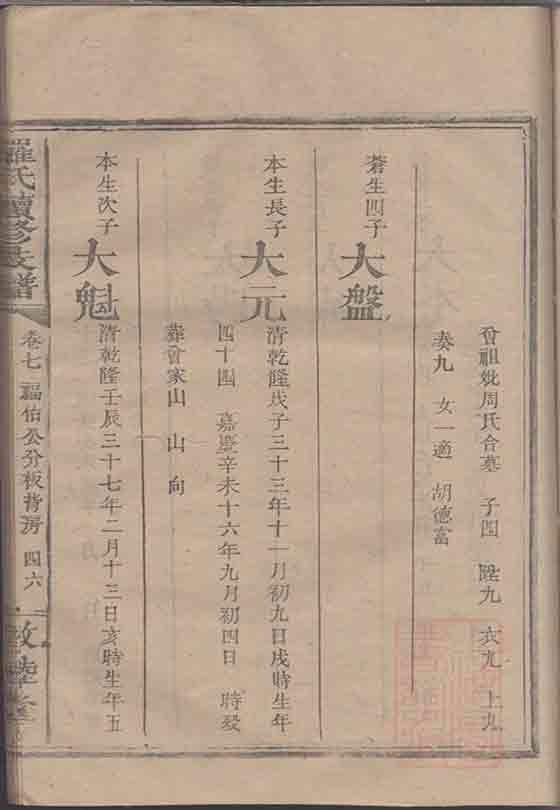 曾祖妣周氏合墓 子四 陞九 衣九 上九
奏九 女一適 胡德富
蒼生四子 大盤
本生長子 大元 清乾隆戊子三十三年十一月初九日戌時生年
四十四 嘉慶辛未十六年九月初四日 時歿
葬會家山 山 向
本生次子 大魁 清乾隆壬辰三十七年二月十三日亥時生年五
羅氏續修支譜 卷七 福伯公分板背房 四六 敦睦堂